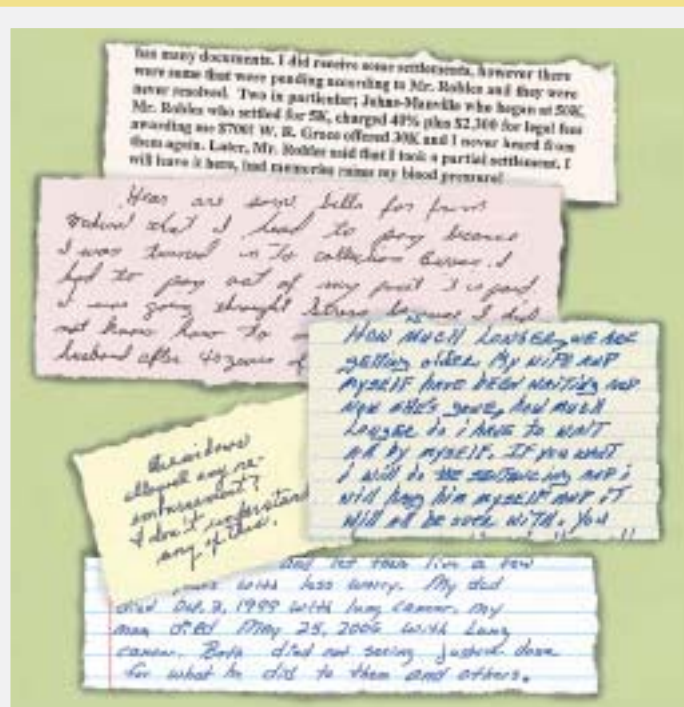 has many documents. I did receive some settlements, however there
were some that were pending according to Mr. Robles and they were
never resolved. Two in particular; Johns-Manville who began at 50K,
Mr. Robles who settled for 5K, charged 40% plus $2,300 for legal fees
awarding me $700! W. R. Grace offered 30K and I never heard from
them again. Later, Mr. Robles said that I took a partial settlement. I
will leave it here, bad memories raises my blood pressure!
Hear are some bills for from
Medical that I had to pay because
I was turned in To collection Bureau. I
had to pay out of my
I was going straight because I did
not know how to
husband after 40 years of
HOW MUCH LONGER, WE ARE
getting older. My WIFE AND
MYSELF HAVE BEEN WAITING AND
NOW SHE'S GONE, HOW MUCH
LONGER do i HAVE TO WAIT
All by MYSELF. IF you WANT
I will do THE SENTENCING AND i
will hang him MYSELF AND IT
Will All BE OVER WITH. YOU
Are widows
allowed any re-
imbursement?
I don't understand
any of this.
and let them live a few
years with less worry. My dad
died Oct. 2, 1999 with lung cancer. my
mom died May 25, 2006 with Lung
cancer. Both died not seeing justice done
for what he did to them and others.